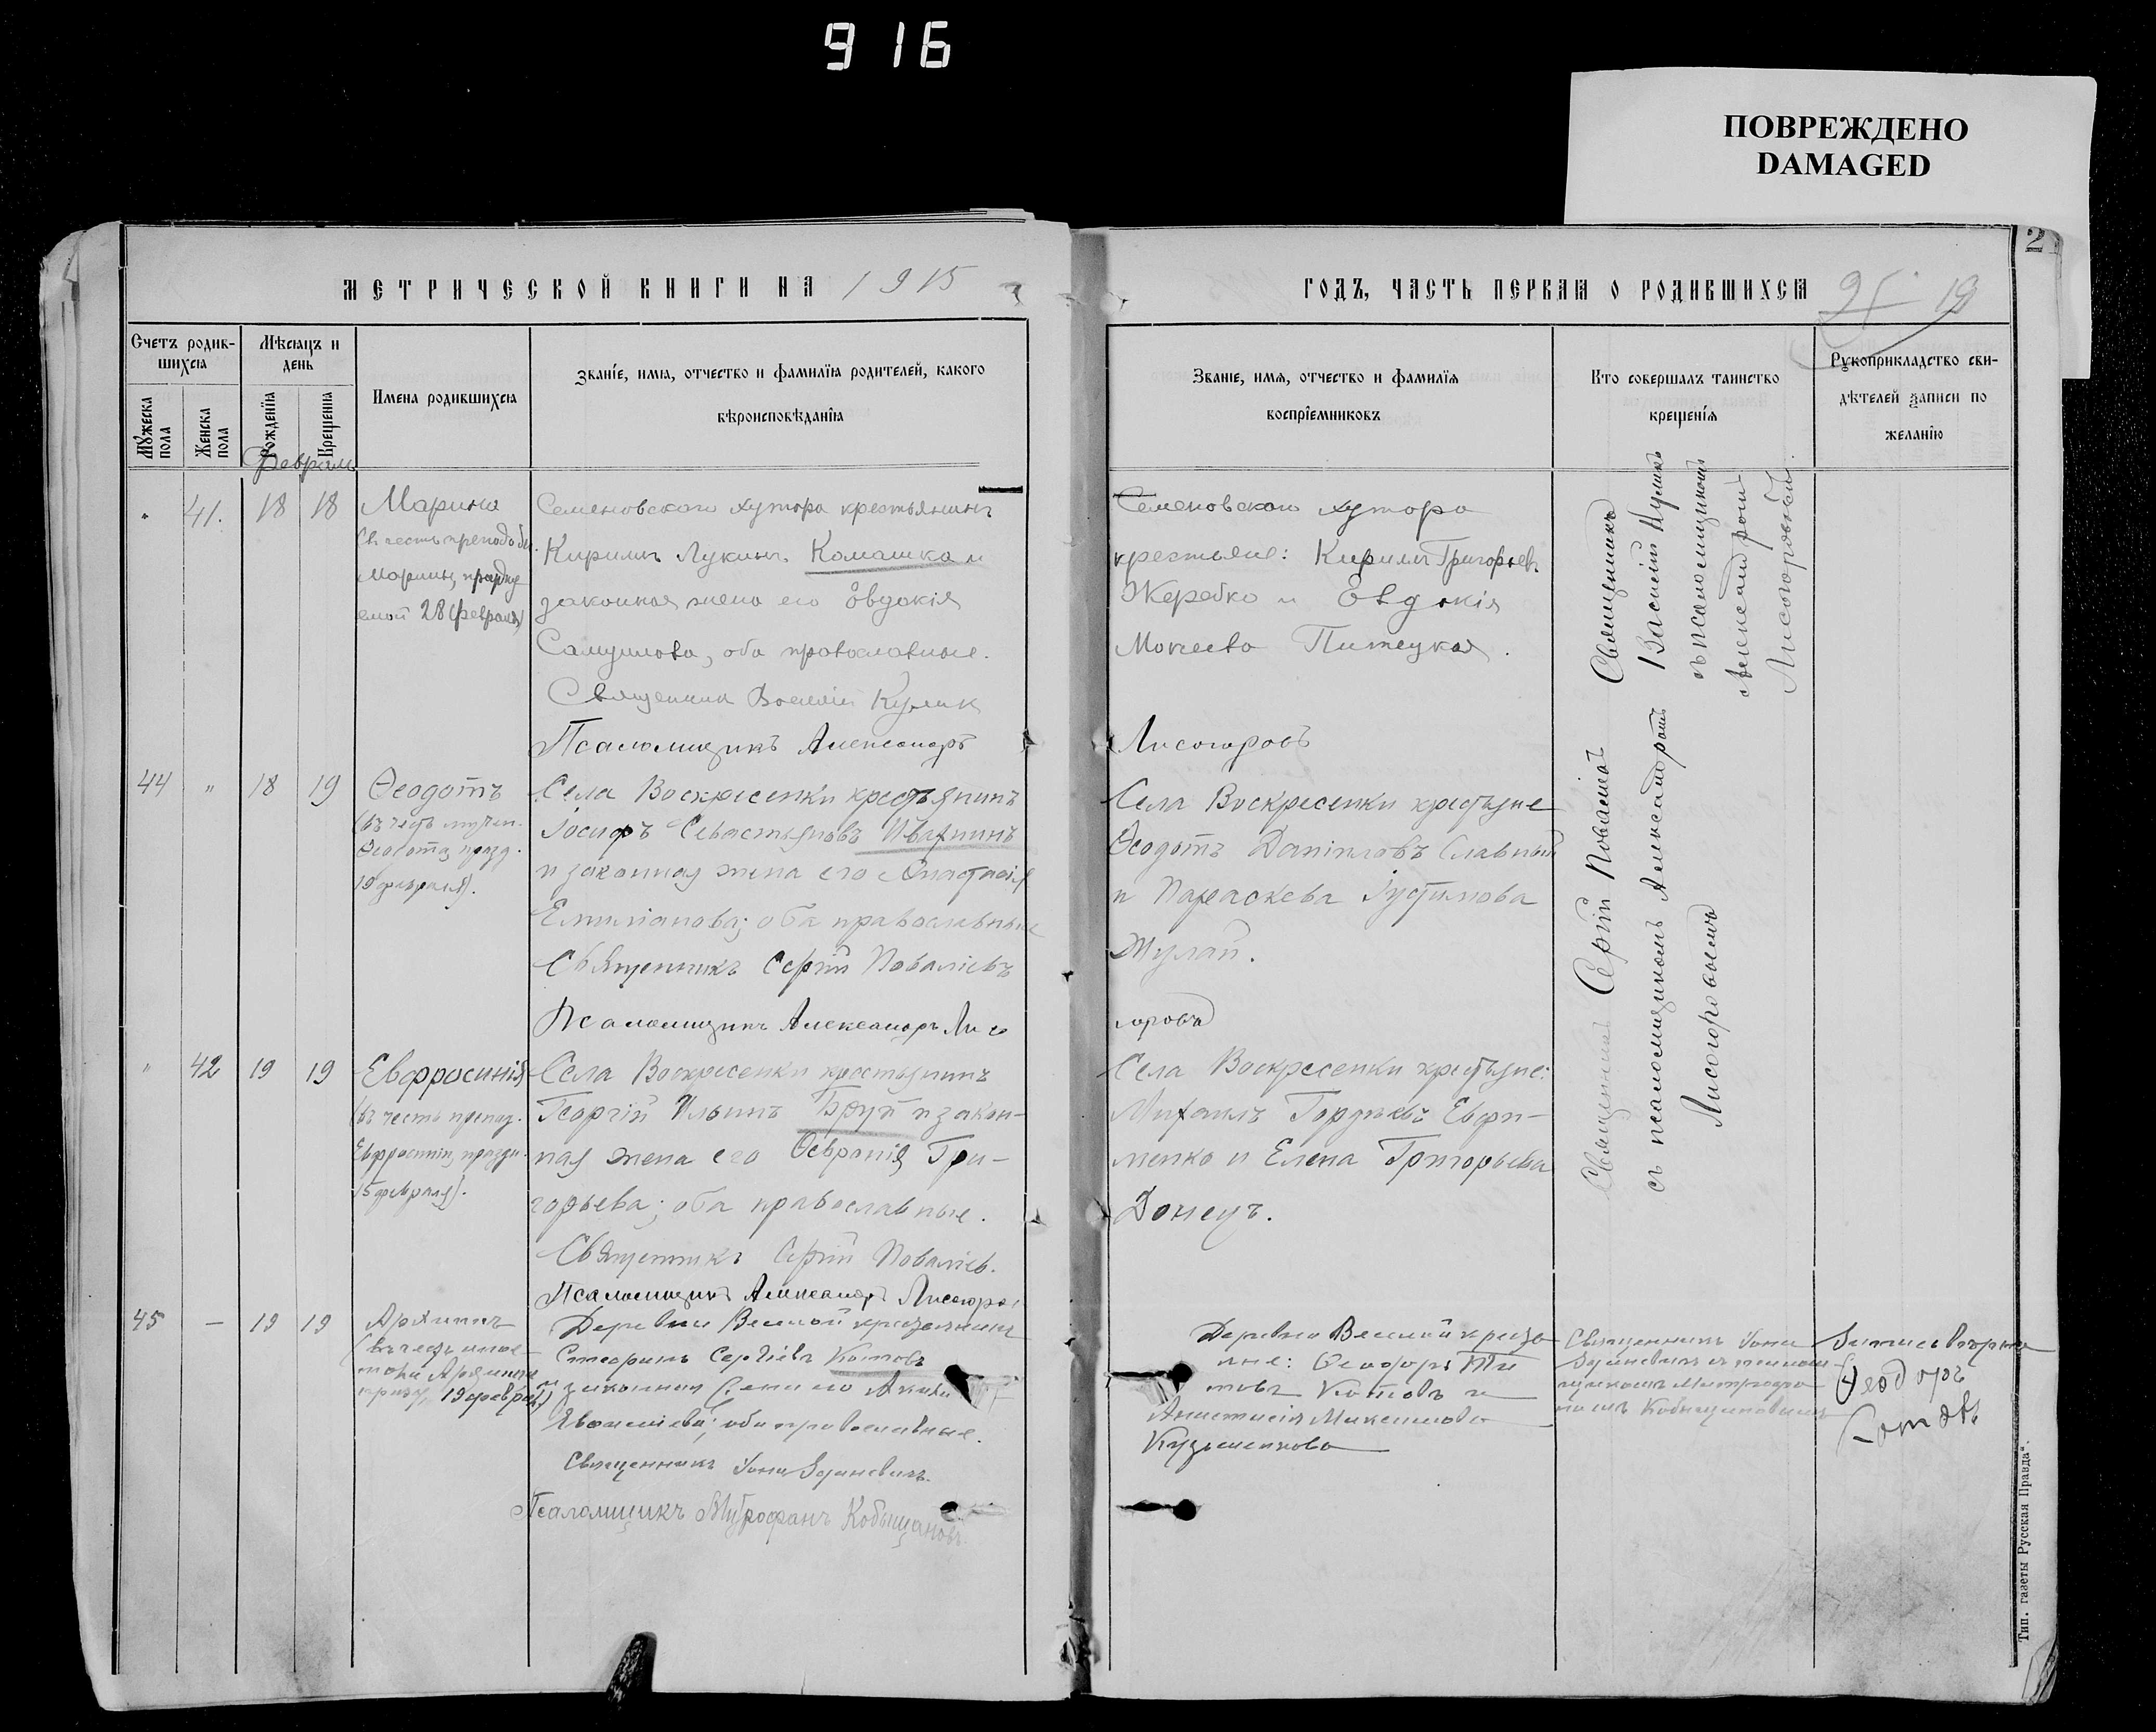 916
ПОВРЕЖДЕНО
DAMAGED
2
МЕТРИЧЕСКОЙ КНИГИ НА 1915
ГОДЪ, ЧАСТЬ ПЕРВАЯ О РОДИВШИХСЯ
Счетъ родив-
шихся
Мужеска пола
Женска пола
Мѣсяцъ и
день
Рожденія
Крещенія
Имена родившихся
Званіе, имя, отчество и фамилія родителей, какого
вѣроисповѣданія
Званіе, имя, отчество и фамилія
воспріемниковъ
Кто совершалъ таинство
крещенія
Рукоприкладство сви-
дѣтелей записи по
желанію
Февраль
" 41. 18 18
Марина
(въ честь преподобн.
Марины, праздну
емой 28 февраля)
Семеновского хутора крестьянинъ
Кирилъ Лукинъ Комашка и
законная жена его Овдокія
Самуилова, оба православные.
Священник Василій Кулик
Псаломщикъ Александръ
Семеновского хутора
крестьяне: Кирилъ Григорьев
Жеребко и Овдокія
Мокеева Питецкая.
Лисогоровъ
Священникъ
Василій Куликъ
съ псаломщикомъ
Александромъ
Лисогоровым.
44 " 18 19
Ѳеодотъ
(въ честь мучен.
Ѳеодота, празд.
19 февраля).
Села Воскресенки крестьянинъ
Іосифъ Севастьяновъ Ивахнинъ
и законная жена его Анастасія
Емиліанова; оба православные
Священникъ Сергій Поваліевъ
Псаломщикъ Александръ Лисо
Села Воскресенки крестьяне
Ѳеодотъ Даніиловъ Славный
и Параскева Іустинова
Жулай.
горовъ
Священникъ Сергій Поваліевъ
съ псаломщикомъ Александромъ
Лисогоровымъ
" 42 19 19
Евфросинія
(въ честь препод.
Евфросиніи, праздн.
15 февраля).
Села Воскресенки крестьянинъ
Георгій Ильинъ Бруй и закон-
ная жена его Ѳевронія Гри-
горьева; оба православные.
Священникъ Сергій Поваліев.
Псаломщикъ Александръ Лисогоро
Села Воскресенки крестьяне:
Михаилъ Гордѣевъ Ефи-
менко и Елена Григорьева
Донецъ.
45 — 19 19
Архиппъ
(въ честь апос-
тола Архиппа
празд. 19 февраля)
Деревни Веселой крестьянинъ
Стефанъ Сергіевъ Котовъ
и законная жена его
оба православные.
Священникъ Іона
Псаломщикъ Митрофанъ Кобыщановъ.
Деревни Веселой кресть
яне: Ѳеодоръ Ти
товъ Котовъ и
Анастасія Максимова
Кузьменкова
Священникъ Іона
съ псалом-
щикомъ Митрофа
номъ Кобыщановымъ
Записи вѣрна
Ѳеодоръ
Котовъ
Тип. газеты Русская Правда".